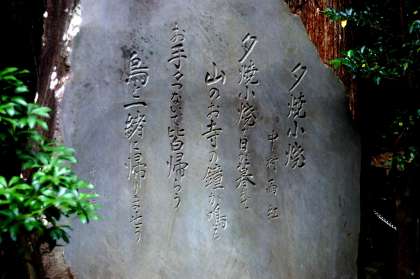 夕焼小焼
中村雨紅
夕焼小焼で日が暮て
山のお寺の鐘が鳴る
お手々つないで皆帰ろう
烏と一緒に帰りましょう